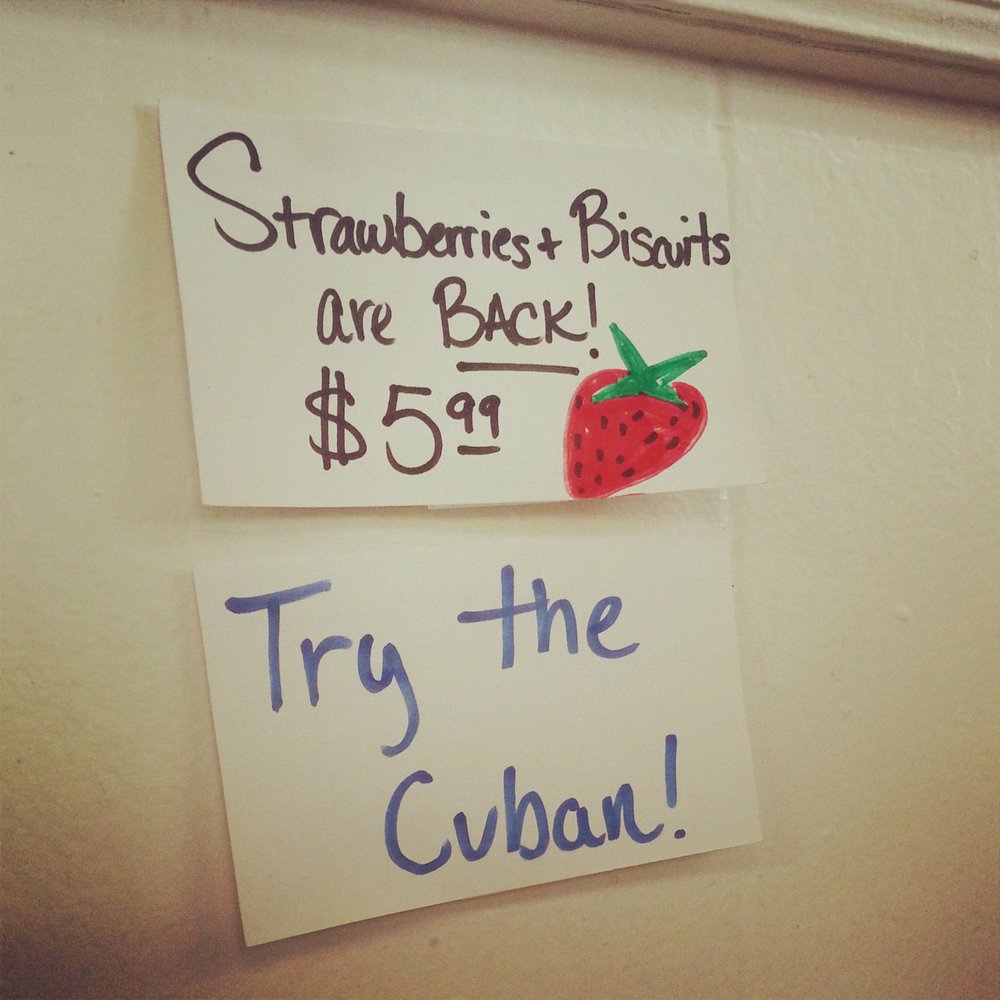 Strawberries + Biscuits
are BACK!
$5.99
Try the
Cuban!